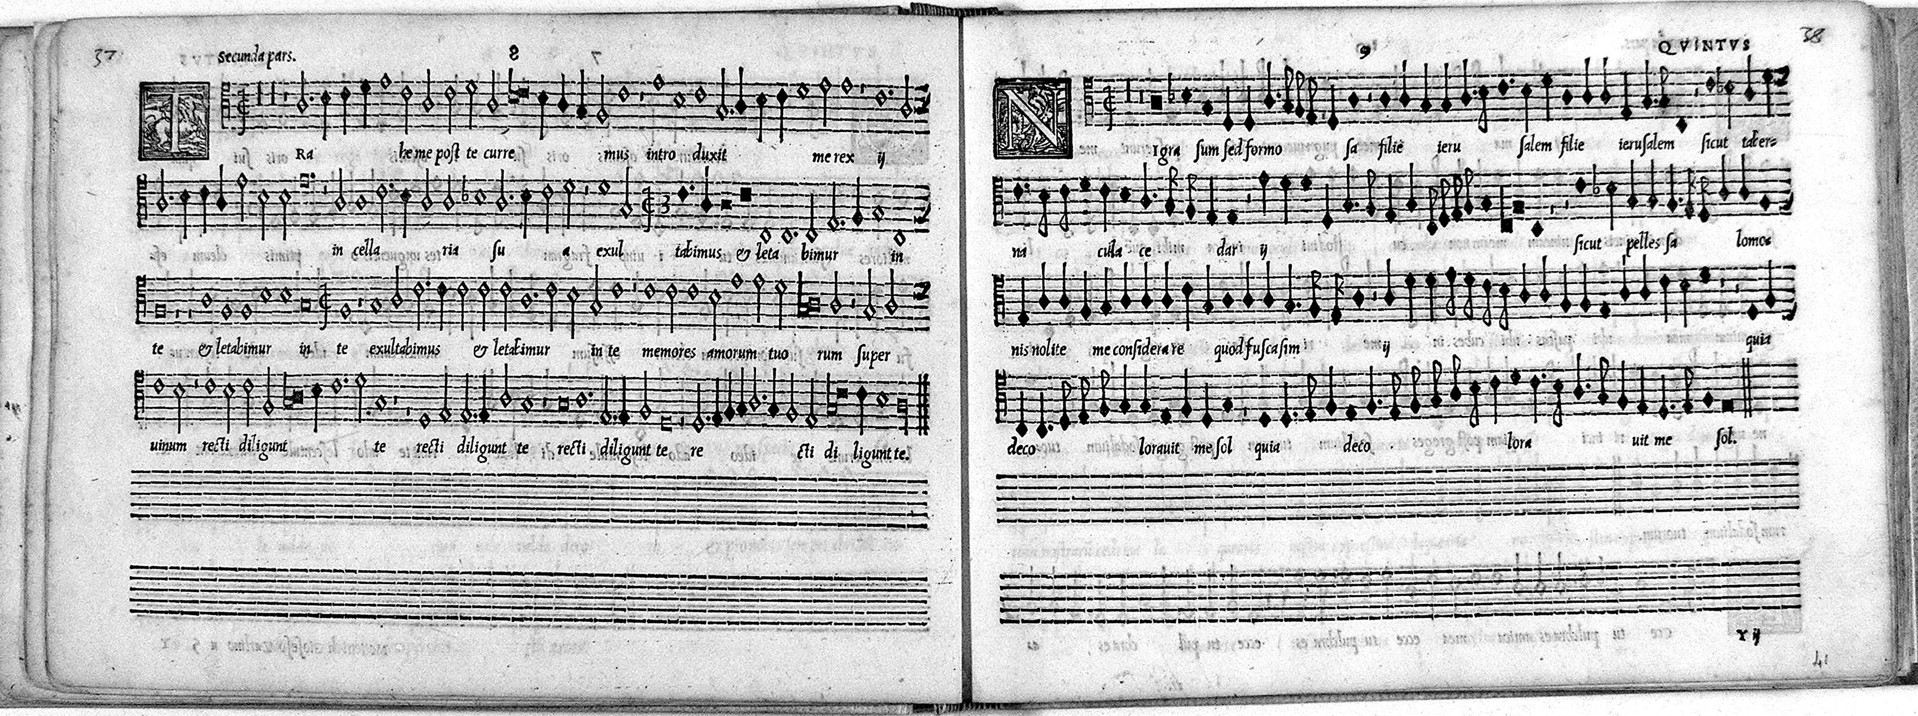 37 Secunda pars. 8
T Ra he me post te curre mus intro duxit me rex ij
in cella ria su a exul tabimus & leta bimur in
te & letabimur in te exultabimus & letabimur in te memores amorum tuo rum super
uinum recti diligunt te recti diligunt te recti diligunt te re cti di ligunt te.
9 QVINTVS 38
N Igra sum sed formo sa filie ieru salem filie ierusalem sicut taber=
na cula ce dar ij sicut pelles sa lomo=
nis nolite me considerare quod fusca sim ij quia
deco lorauit me sol quia deco lora uit me sol.
Y ij
41